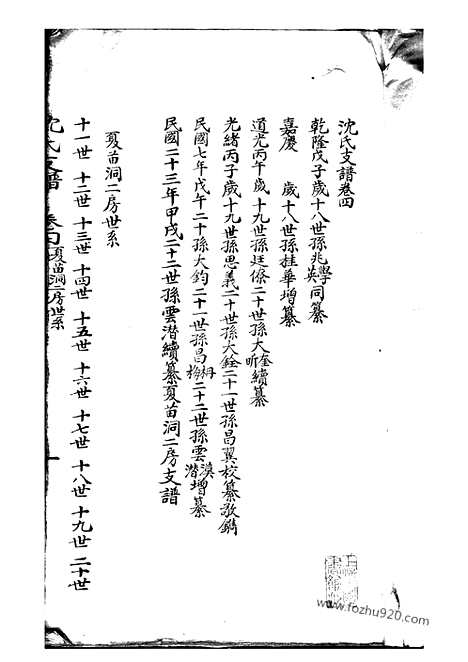 沈氏支譜卷四
乾隆戊子歲十八世孫兆學英同纂
嘉慶　歲十八世孫桂華增纂
道光丙午歲十九世孫廷僚二十世孫大奎昕續纂
光緒丙子歲十九世孫思義二十世孫大銓二十一世孫昌翼校纂敬鐫
民國七年戊午二十孫大鈞二十一世孫昌梅二十二世孫雲漢潛增纂
民國二十三年甲戌二十二世孫雲潛續纂夏苗洞二房支譜
夏苗洞二房世系
十一世 十二世 十三世 十四世 十五世 十六世 十七世 十八世 十九世 二十世
沈氏支譜 卷四 夏苗洞二房世系
www.fozhu920.com